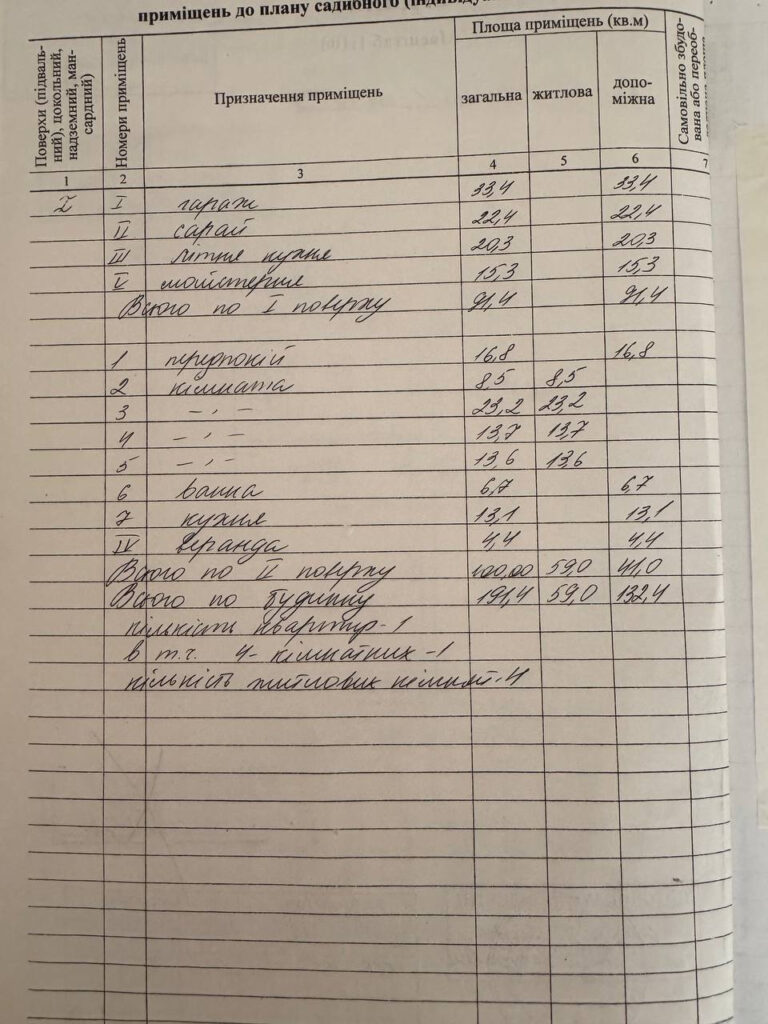 приміщень до плану садибного (індивідуа
Поверхи (підваль-
ний), цокольний,
надземний, ман-
сардний)
Номери приміщень
Призначення приміщень
Площа приміщень (кв.м)
загальна житлова допо-
міжна
Самовільно збудо-
вана або переоб-
1 2 3 4 5 6 7
I I гараж 33,4 33,4
II сарай 22,4 22,4
III літня кухня 20,3 20,3
V майстерня 15,3 15,3
Всього по I поверху 91,4 91,4
1 передпокій 16,8 16,8
2 кімната 8,5 8,5
3 – , – 23,2 23,2
4 – , – 13,7 13,7
5 – , – 13,6 13,6
6 ванна 6,7 6,7
7 кухня 13,1 13,1
IV веранда 4,4 4,4
Всього по II поверху 100,00 59,0 41,0
Всього по будинку 191,4 59,0 132,4
кількість квартир - 1
в т.ч. 4 - кімнатних - 1
кількість житлових кімнат - 4